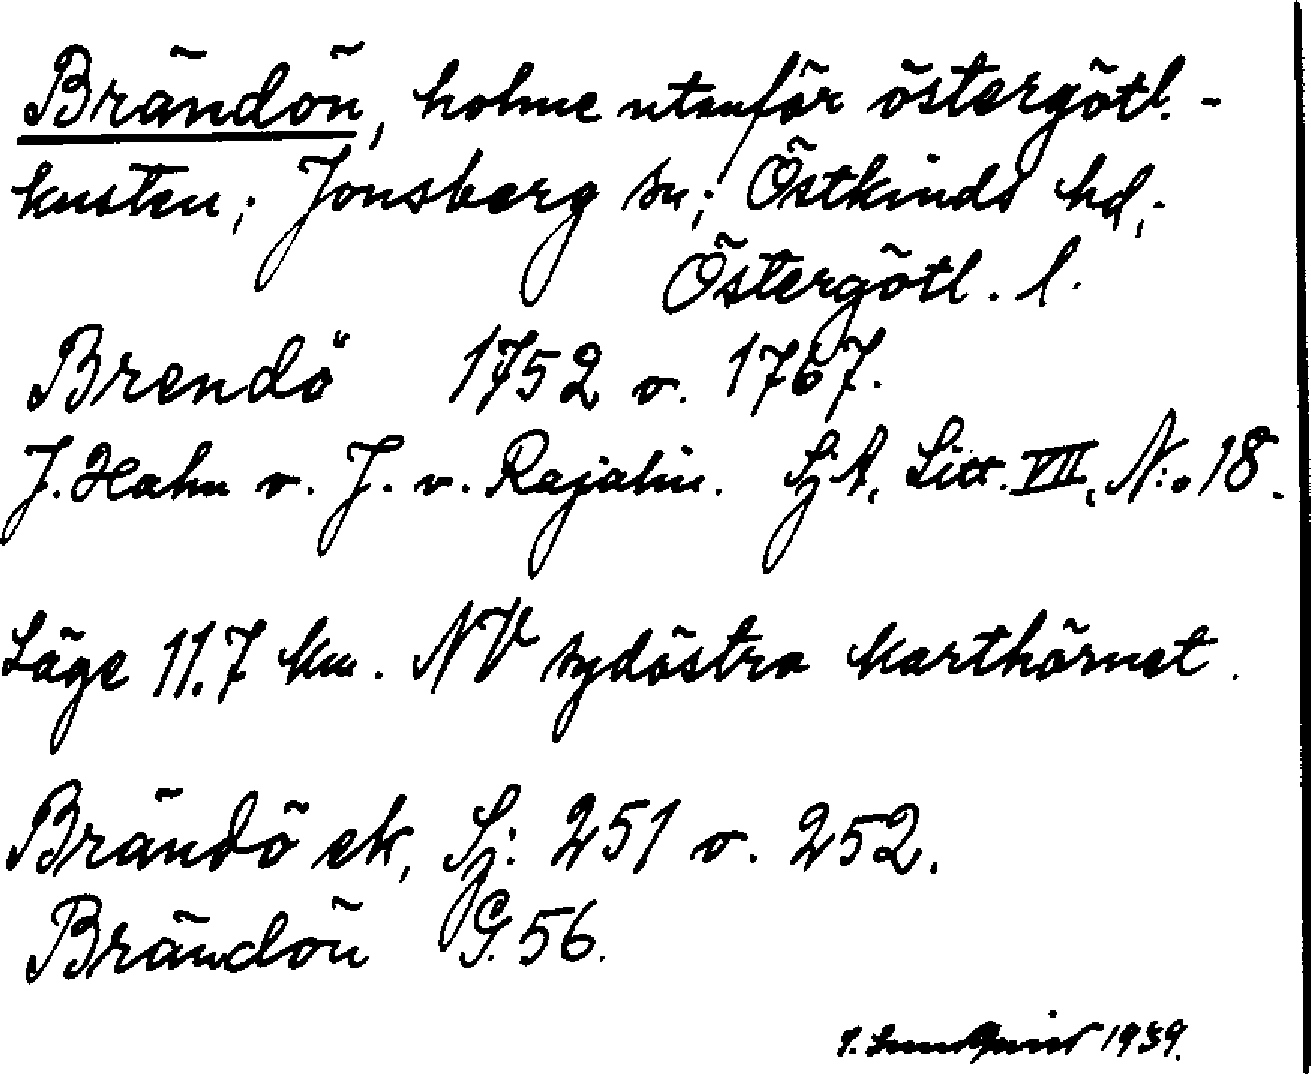 Brändön, holme utanför östergötl.-
kusten; Jonsberg sn; Östkinds hd,-
Östergötl. l.
Brendö 1752 o. 1767.
J. Hahn o. J. v. Rajalin. Sj A, Litt. VII, N:o 18.
Läge 11.7 km. NV sydöstra karthörnet.
Brändö ek, Sj: 251 o. 252.
Brändön G. 56.
1939.